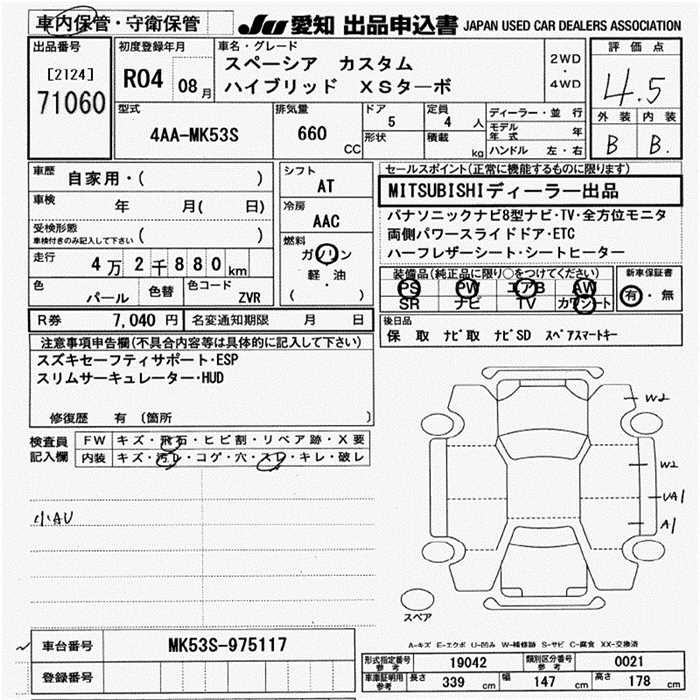 車内保管・守衛保管
JU 愛知 出品申込書 JAPAN USED CAR DEALERS ASSOCIATION
出品番号
[2124]
71060
初度登録年月
R04 08月
車名・グレード
スペーシア カスタム
ハイブリッド XSターボ
2WD
・
4WD
評価点
4.5
外装 内装
B B.
型式
4AA-MK53S
排気量
660 CC
ドア
5
形状
定員
4 人
積載
kg
ディーラー・並行
モデル年式 年
ハンドル 左・右
車歴
自家用・( )
車検 年 月( 日)
受検形態
車検付きのみ記入して下さい ( )
走行 4万2千880km
色 パール 色替 色コード ZVR
シフト
AT
冷房
AAC
燃料
ガソリン
軽油
( )
R券 7,040円 名変通知期限 月 日
セールスポイント(正常に機能するものに限ります)
MITSUBISHIディーラー出品
パナソニックナビ8型ナビ・TV・全方位モニタ
両側パワースライドドア・ETC
ハーフレザーシート・シートヒーター
装備品(純正品に限り○をつけてください)
PS PW エアB AW
SR ナビ TV カワシート
新車保証書
有・無
後日品
保 取 ナビ取 ナビSD スペアスマートキー
注意事項申告欄(不具合内容等は具体的に記入して下さい)
スズキセーフティサポート・ESP
スリムサーキュレーター・HUD
修復歴 有 〔箇所 〕
検査員記入欄
FW キズ・飛石・ヒビ割・リペア跡・X要
内装 キズ・汚レ・コゲ・穴・スレ・キレ・破レ
小AU
W2
W2
UA1
A1
スペア
A-キズ E-エクボ U-凹み W-補修跡 S-サビ C-腐食 XX-交換済
車台番号 MK53S-975117
登録番号
形式指定番号参考 19042 類別区分番号参考 0021
車庫証明用参考 長さ 339 cm 幅 147 cm 高さ 178 cm